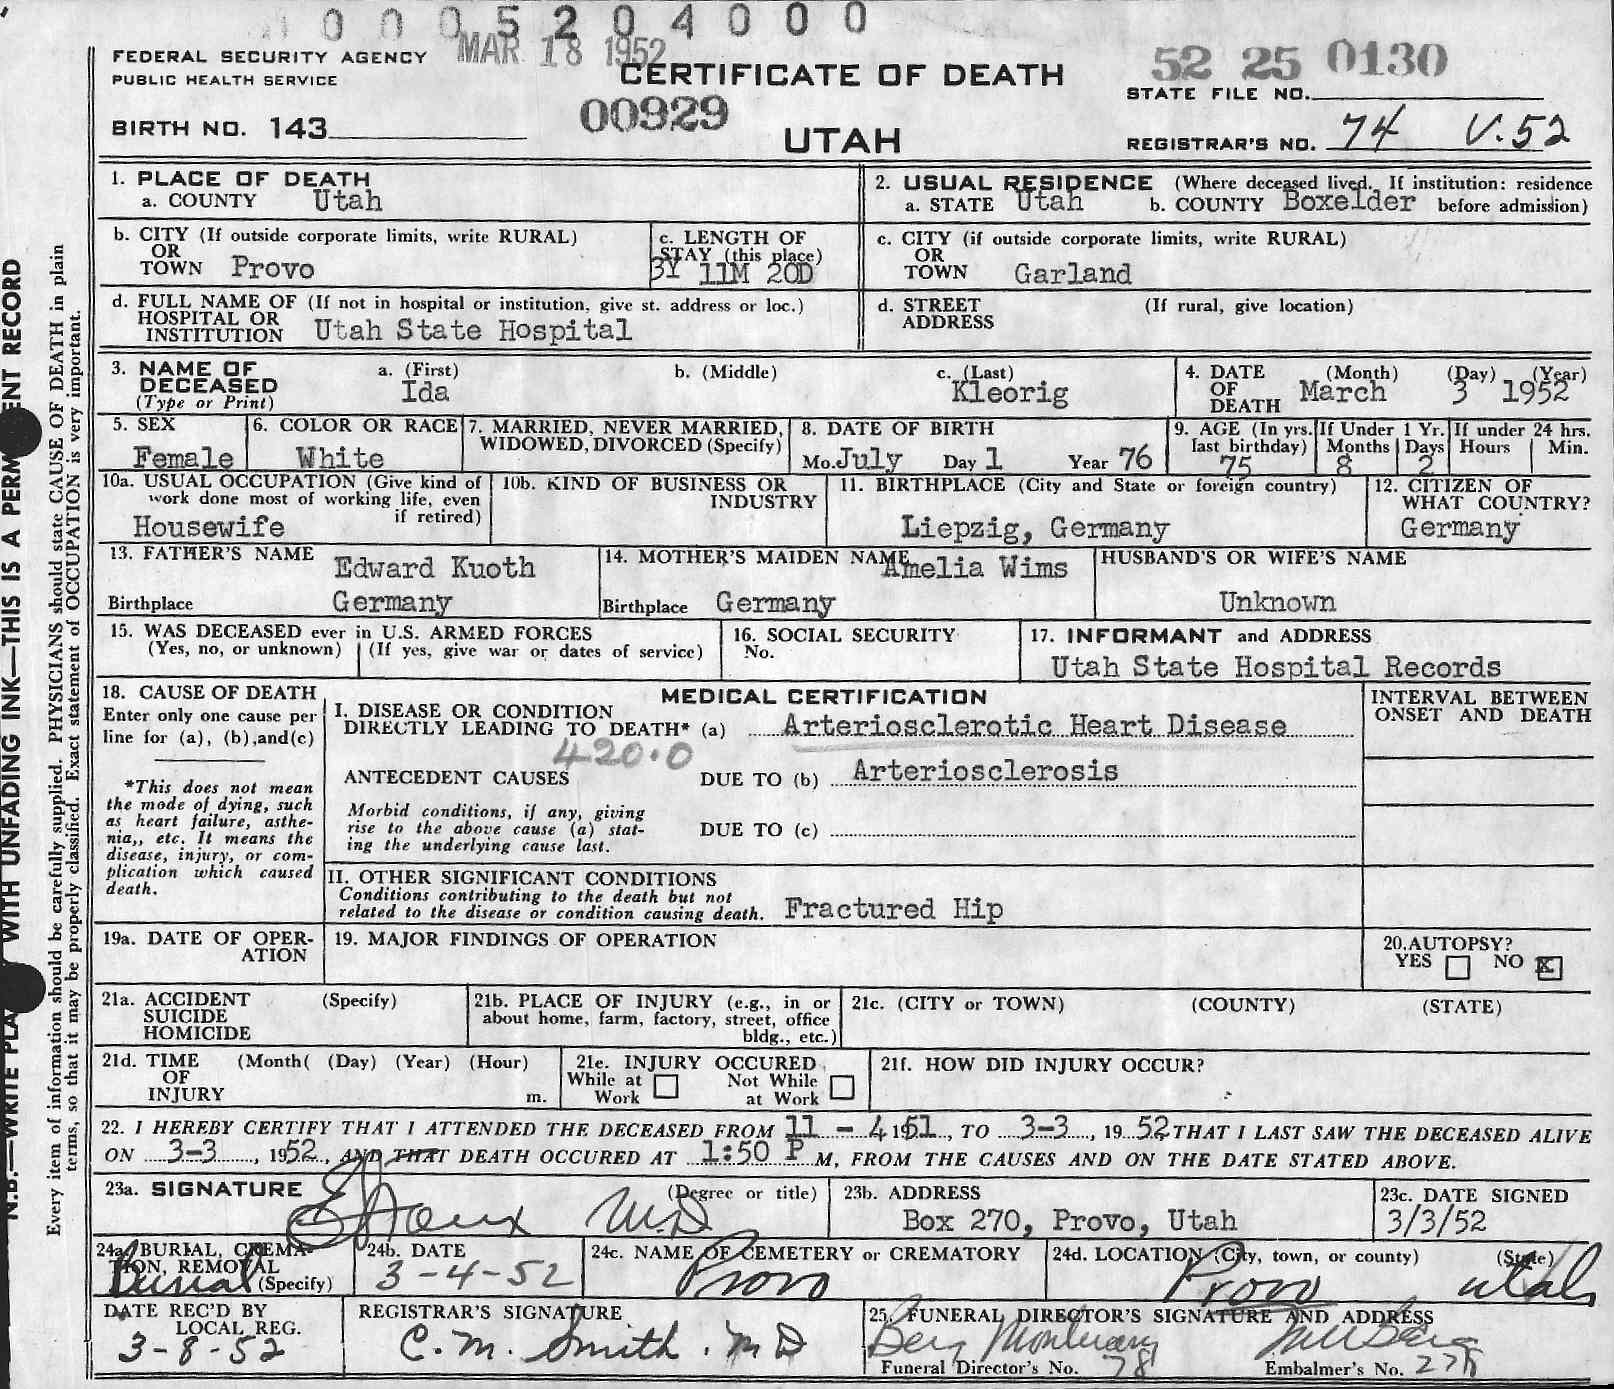 0 0 0 5 2 0 4 0 0 0
MAR 18 1952
FEDERAL SECURITY AGENCY
PUBLIC HEALTH SERVICE
CERTIFICATE OF DEATH
52 25 0130
STATE FILE NO.
00929
BIRTH NO. 143
UTAH
REGISTRAR'S NO. 74 V.52
1. PLACE OF DEATH
a. COUNTY Utah
2. USUAL RESIDENCE (Where deceased lived. If institution: residence
a. STATE Utah b. COUNTY Boxelder before admission)
b. CITY (If outside corporate limits, write RURAL)
OR
TOWN Provo
c. LENGTH OF
STAY (this place)
3Y 11M 20D
c. CITY (if outside corporate limits, write RURAL)
OR
TOWN Garland
d. FULL NAME OF (If not in hospital or institution, give st. address or loc.)
HOSPITAL OR
INSTITUTION Utah State Hospital
d. STREET (If rural, give location)
ADDRESS
3. NAME OF
DECEASED
(Type or Print)
a. (First)
Ida
b. (Middle)
c. (Last)
Kleorig
4. DATE (Month) (Day) (Year)
OF
DEATH March 3 1952
5. SEX
Female
6. COLOR OR RACE
White
7. MARRIED, NEVER MARRIED,
WIDOWED, DIVORCED (Specify)
8. DATE OF BIRTH
Mo. July Day 1 Year 76
9. AGE (In yrs.
last birthday)
75
If Under 1 Yr.
Months Days
8 2
If under 24 hrs.
Hours Min.
10a. USUAL OCCUPATION (Give kind of
work done most of working life, even
if retired)
Housewife
10b. KIND OF BUSINESS OR
INDUSTRY
11. BIRTHPLACE (City and State or foreign country)
Liepzig, Germany
12. CITIZEN OF
WHAT COUNTRY?
Germany
13. FATHER'S NAME Edward Kuoth
Birthplace Germany
14. MOTHER'S MAIDEN NAME Amelia Wims
Birthplace Germany
HUSBAND'S OR WIFE'S NAME
Unknown
15. WAS DECEASED ever in U.S. ARMED FORCES
(Yes, no, or unknown) (If yes, give war or dates of service)
16. SOCIAL SECURITY
No.
17. INFORMANT and ADDRESS
Utah State Hospital Records
18. CAUSE OF DEATH
Enter only one cause per
line for (a), (b), and (c)
*This does not mean
the mode of dying, such
as heart failure, asthe-
nia,, etc. It means the
disease, injury, or com-
plication which caused
death.
MEDICAL CERTIFICATION
I. DISEASE OR CONDITION
DIRECTLY LEADING TO DEATH* (a) Arteriosclerotic Heart Disease
420.0
ANTECEDENT CAUSES DUE TO (b) Arteriosclerosis
Morbid conditions, if any, giving
rise to the above cause (a) stat-
ing the underlying cause last.
DUE TO (c)
INTERVAL BETWEEN
ONSET AND DEATH
II. OTHER SIGNIFICANT CONDITIONS
Conditions contributing to the death but not
related to the disease or condition causing death. Fractured Hip
19a. DATE OF OPER-
ATION
19. MAJOR FINDINGS OF OPERATION
20. AUTOPSY?
YES NO X
21a. ACCIDENT (Specify)
SUICIDE
HOMICIDE
21b. PLACE OF INJURY (e.g., in or
about home, farm, factory, street, office
bldg., etc.)
21c. (CITY or TOWN) (COUNTY) (STATE)
21d. TIME (Month( (Day) (Year) (Hour)
OF
INJURY m.
21e. INJURY OCCURED
While at Not While
Work at Work
21f. HOW DID INJURY OCCUR?
22. I HEREBY CERTIFY THAT I ATTENDED THE DECEASED FROM 11 - 4 1951, TO 3-3, 19 52 THAT I LAST SAW THE DECEASED ALIVE
ON 3-3, 1952, AND THAT DEATH OCCURED AT 1:50 P M, FROM THE CAUSES AND ON THE DATE STATED ABOVE.
23a. SIGNATURE (Degree or title)
M.D
23b. ADDRESS
Box 270, Provo, Utah
23c. DATE SIGNED
3/3/52
24a. BURIAL, CREMA-
TION, REMOVAL
Burial (Specify)
24b. DATE
3-4-52
24c. NAME OF CEMETERY or CREMATORY
Provo
24d. LOCATION (City, town, or county) (State)
Provo Utah
DATE REC'D BY
LOCAL REG.
3-8-52
REGISTRAR'S SIGNATURE
C. M. Smith. MD
25. FUNERAL DIRECTOR'S SIGNATURE AND ADDRESS
Berg Mortuary
Funeral Director's No. 78 Embalmer's No.
N.B.—WRITE WITH UNFADING INK—THIS IS A RECORD
Every item of information should be carefully supplied. PHYSICIANS should state CAUSE OF DEATH in plain
terms, so that it may be properly classified. Exact statement of OCCUPATION is very important.